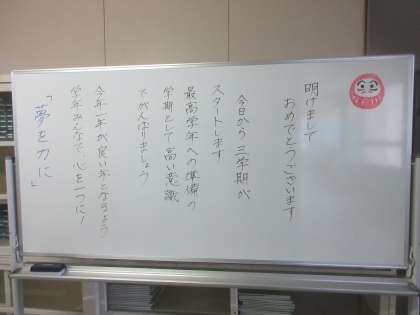 明けまして
おめでとうございます
今日から三学期が
スタートします
最高学年への準備の
学期として高い意識
でがんばりましょう
今年一年が良い年となるよう
学年みんなで、心を一つに!
「夢を力に」